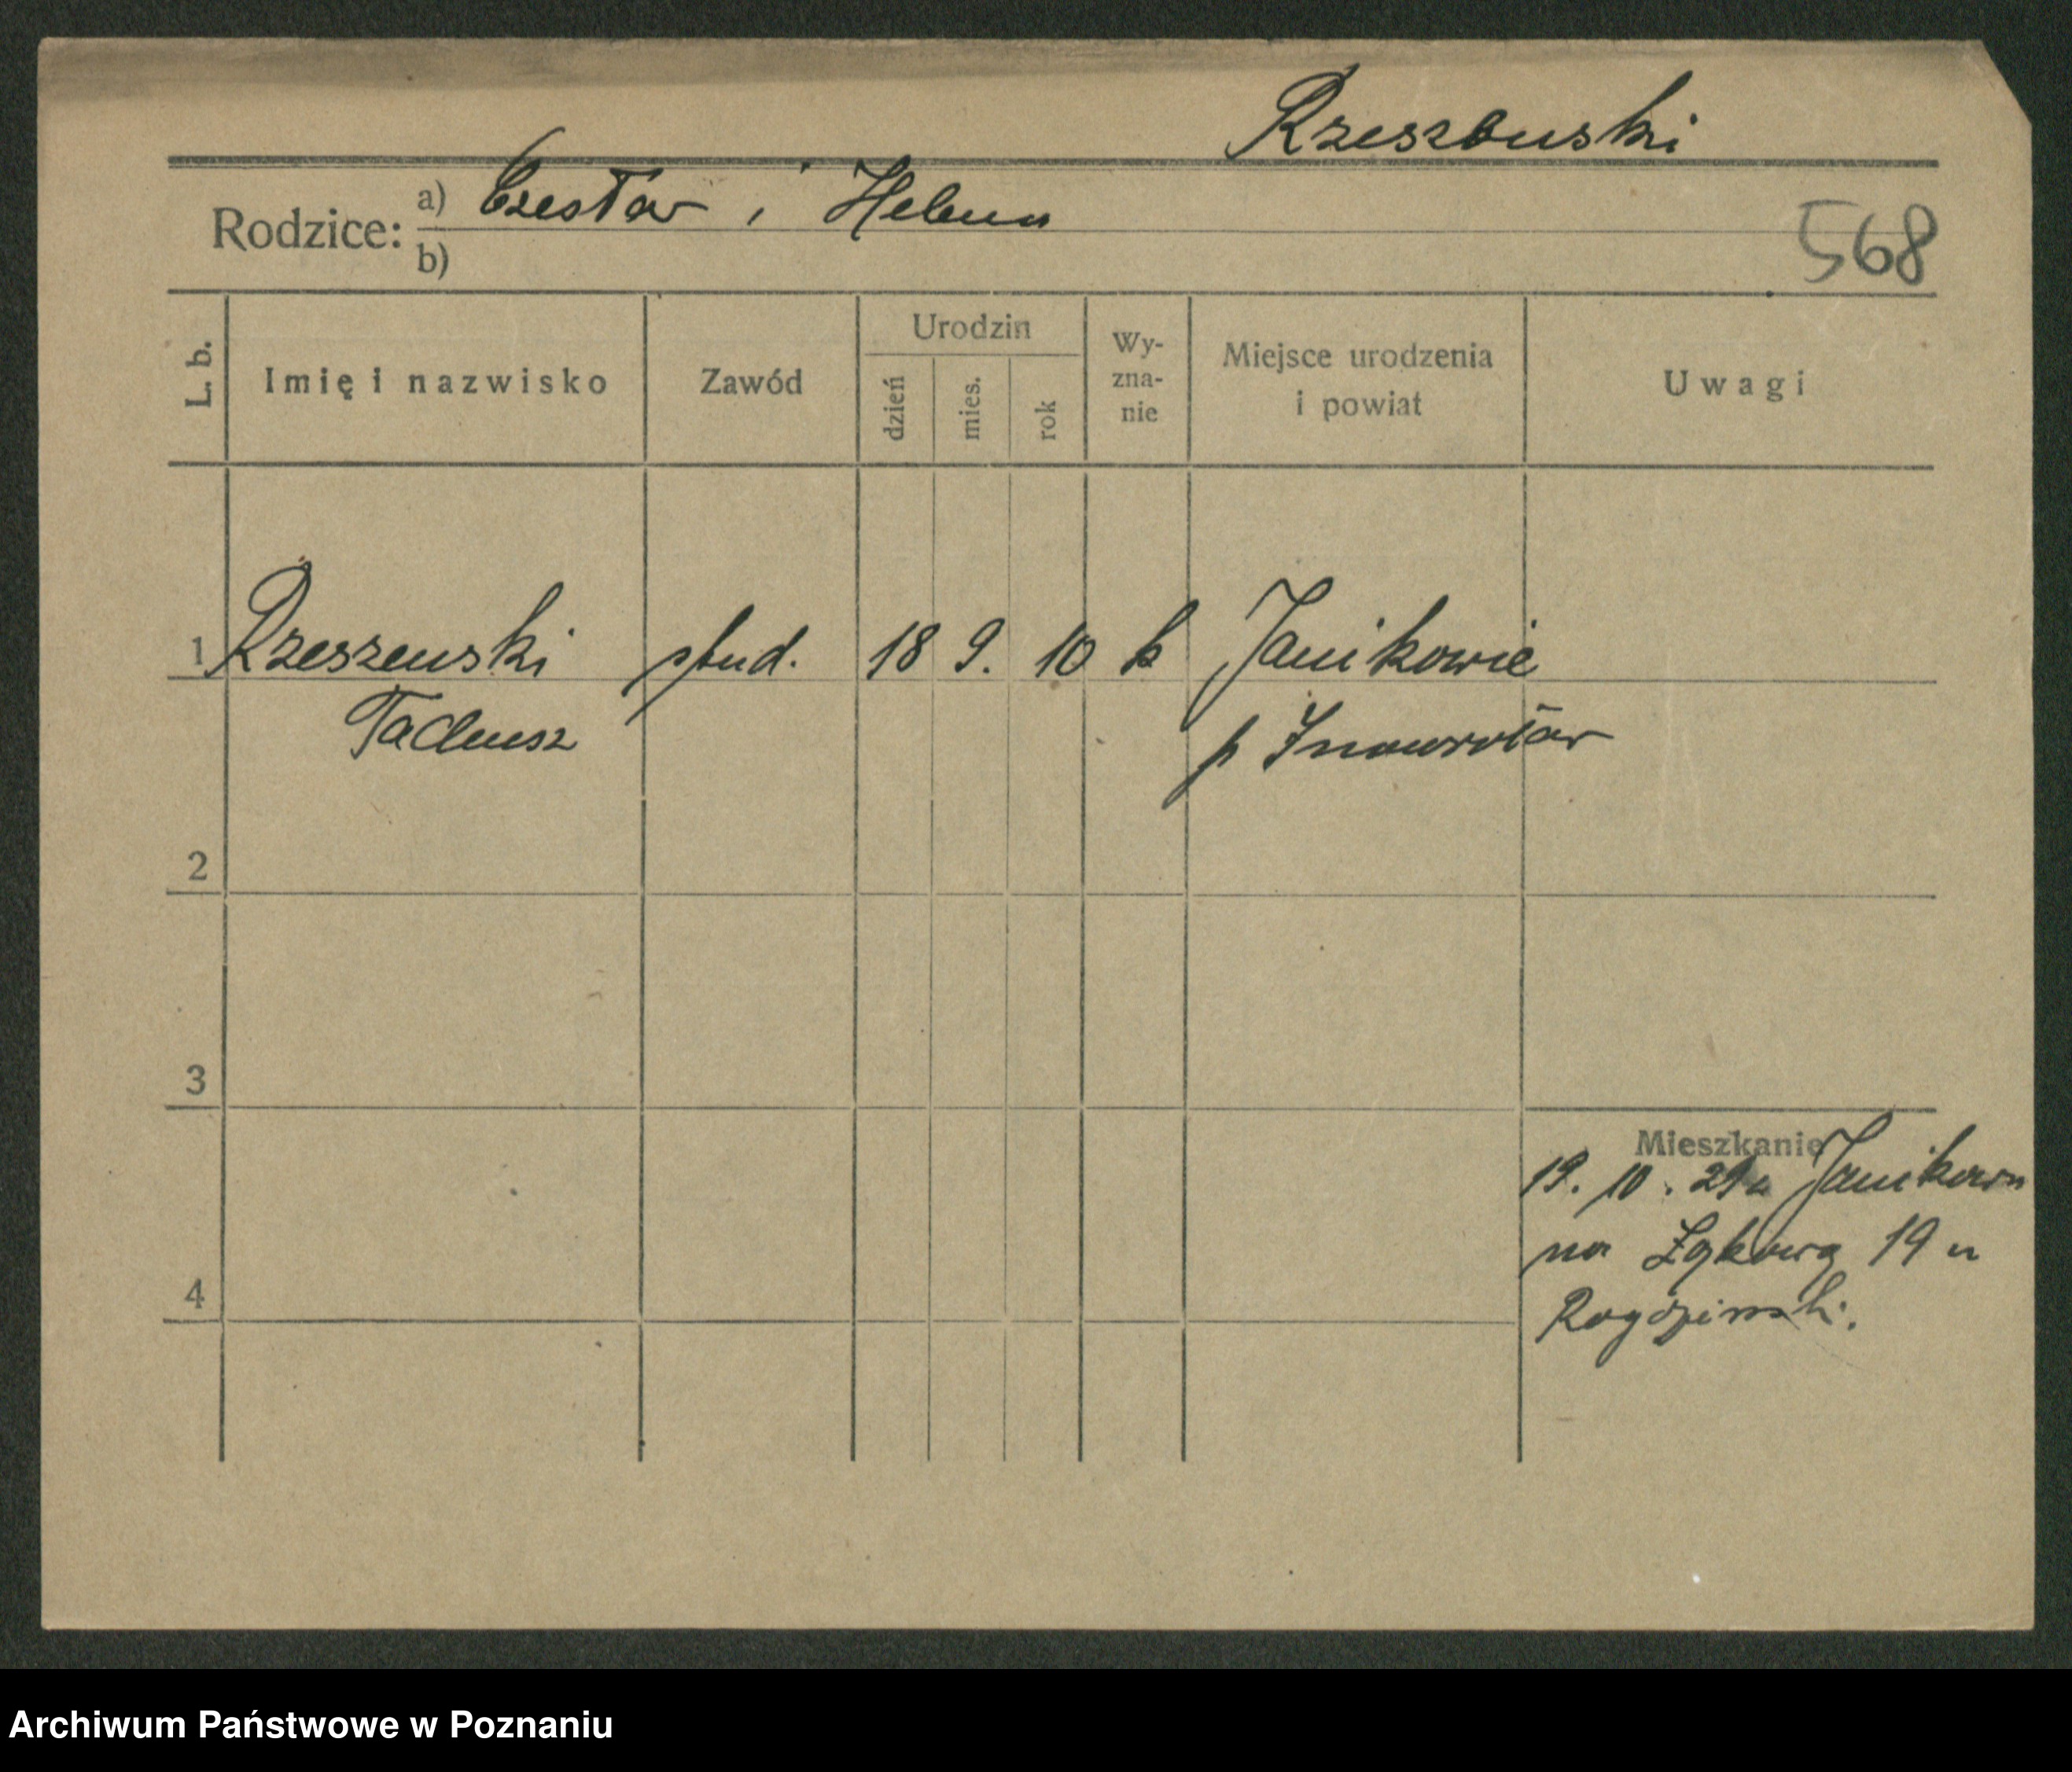 Rzeszewski
Rodzice: a) Czesław i Helena
b)
568
L. b. Imię i nazwisko Zawód Urodzin dzień mies. rok Wy-zna-nie Miejsce urodzenia i powiat Uwagi
1 Rzeszewski stud. 18 9. 10 k Janikowie
Tadeusz p Inowrocław
2
3
Mieszkanie
19. 10. 29 z Janikowa
na Łąkową 19 u
4
Archiwum Państwowe w Poznaniu